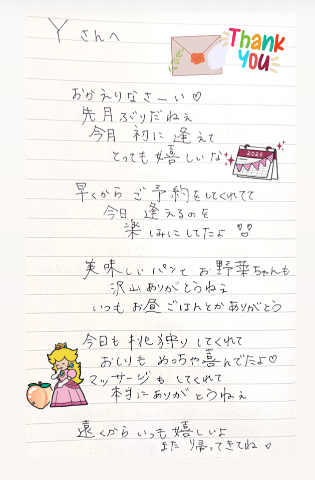 Yさんへ
Thank
you
おかえりなさーい♡
先月ぶりだねぇ
今月 初に逢えて
とっても嬉しいな
2025
早くからご予約をしてくれてて
今日 逢えるのを
楽しみにしてたよ
美味しいパンとお野菜ちゃんも
沢山ありがとうねぇ
いつもお昼ごはんとかありがとう
今日も桃狩りしてくれて
おしりもめっちゃ喜んでたよ♡
マッサージもしてくれて
本当にありがとうねぇ
遠くからいつも嬉しいよ
また帰ってきてね